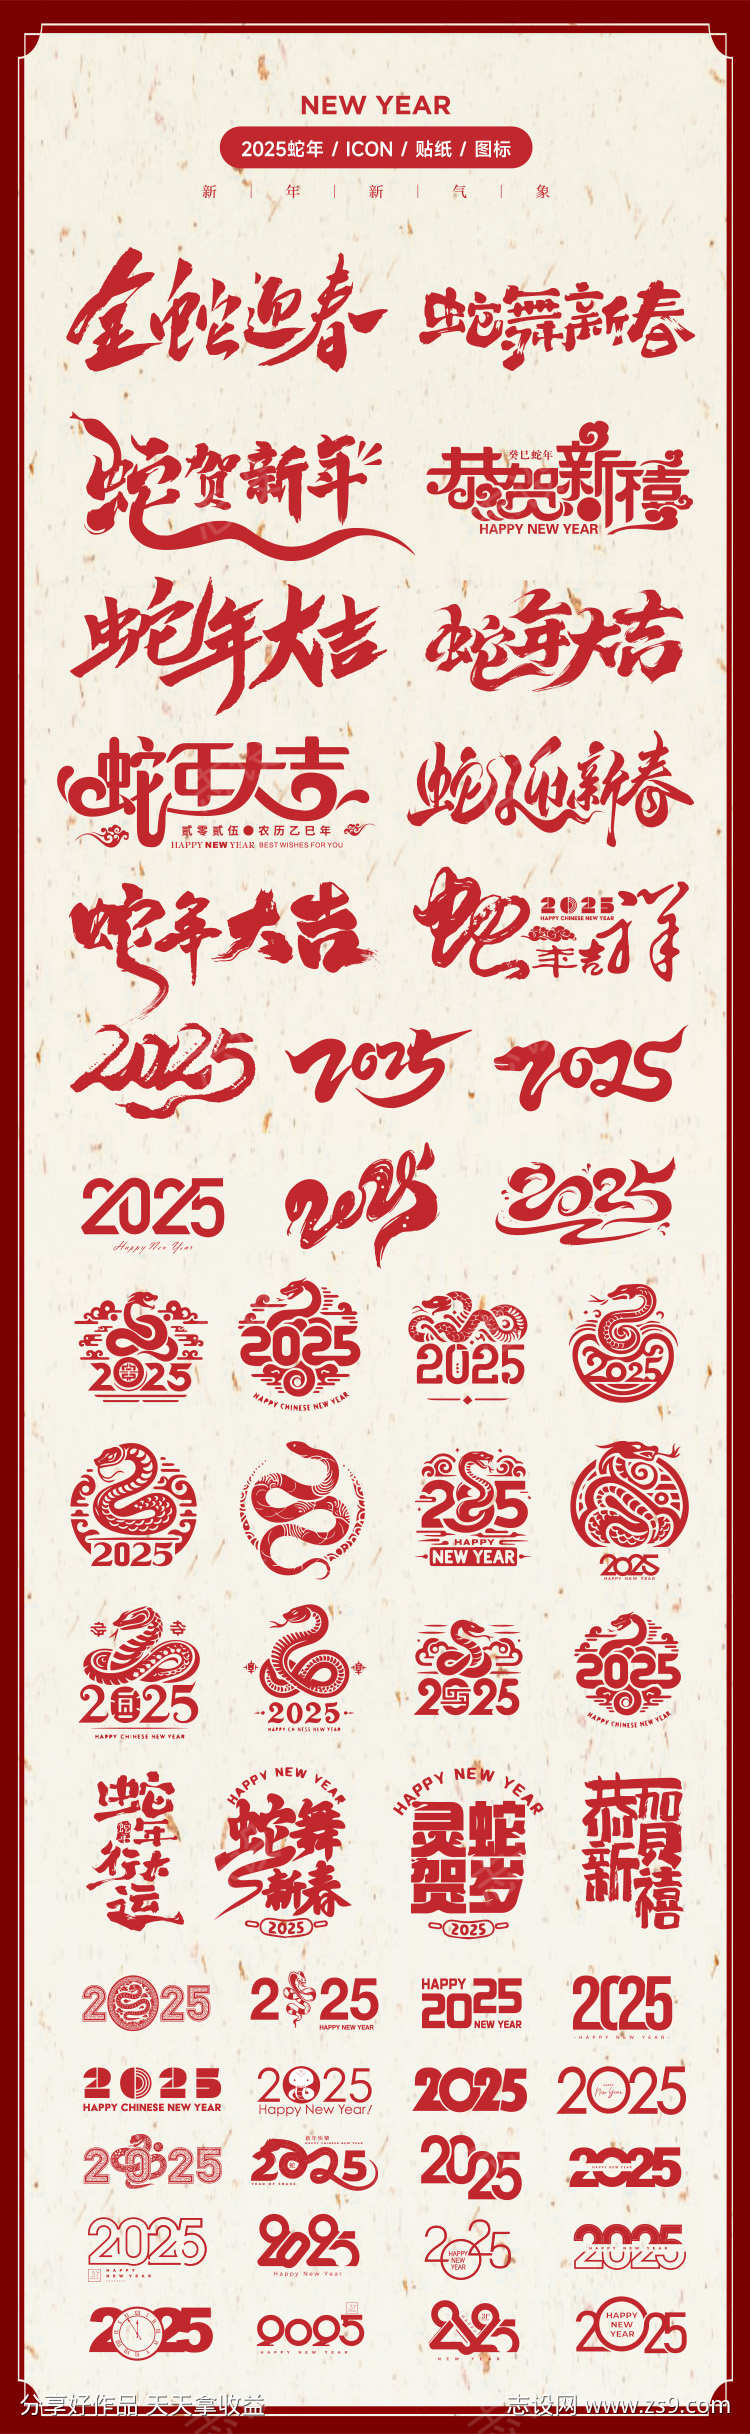 NEW YEAR
2025蛇年 / ICON / 贴纸 / 图标
新 | 年 | 新 | 气 | 象
金蛇迎春
蛇舞新春
蛇贺新年
癸巳蛇年
恭贺新禧
HAPPY NEW YEAR
蛇年大吉
蛇年大吉
蛇年大吉
贰零贰伍●农历乙巳年
HAPPY NEW YEAR BEST WISHES FOR YOU
蛇迎新春
蛇年大吉
蛇年吉祥
2025
HAPPY CHINESE NEW YEAR
2025
2025
2025
2025
Happy New Year
2025
2025
2025
2025
HAPPY CHINESE NEW YEAR
2025
2025
2025
2025
HAPPY
NEW YEAR
2025
HAPPY NEW YEAR
2025
HAPPY CHINESE NEW YEAR
2025
HAPPY CHINESE NEW YEAR
2025
2025
HAPPY CHINESE NEW YEAR
蛇年
行大
运
HAPPY NEW YEAR
蛇舞
新春
2025
HAPPY NEW YEAR
灵蛇
贺岁
2025
恭贺
新禧
2025
2025
HAPPY NEW YEAR
HAPPY
2025
NEW YEAR
2025
HAPPY NEW YEAR
2025
HAPPY CHINESE NEW YEAR
2025
Happy New Year!
2025
2025
New Year
2025
2025
2025
2025
HAPPY NEW YEAR
2025
HAPPY
NEW YEAR
2025
Happy New Year
2025
HAPPY
NEW
YEAR
2025
HAPPY NEW YEAR
2025
2025
HAPPY NEW YEAR
2025
NEW YEAR
2025
HAPPY
NEW
YEAR
分享好作品 天天拿收益
志设网 www.zs9.com